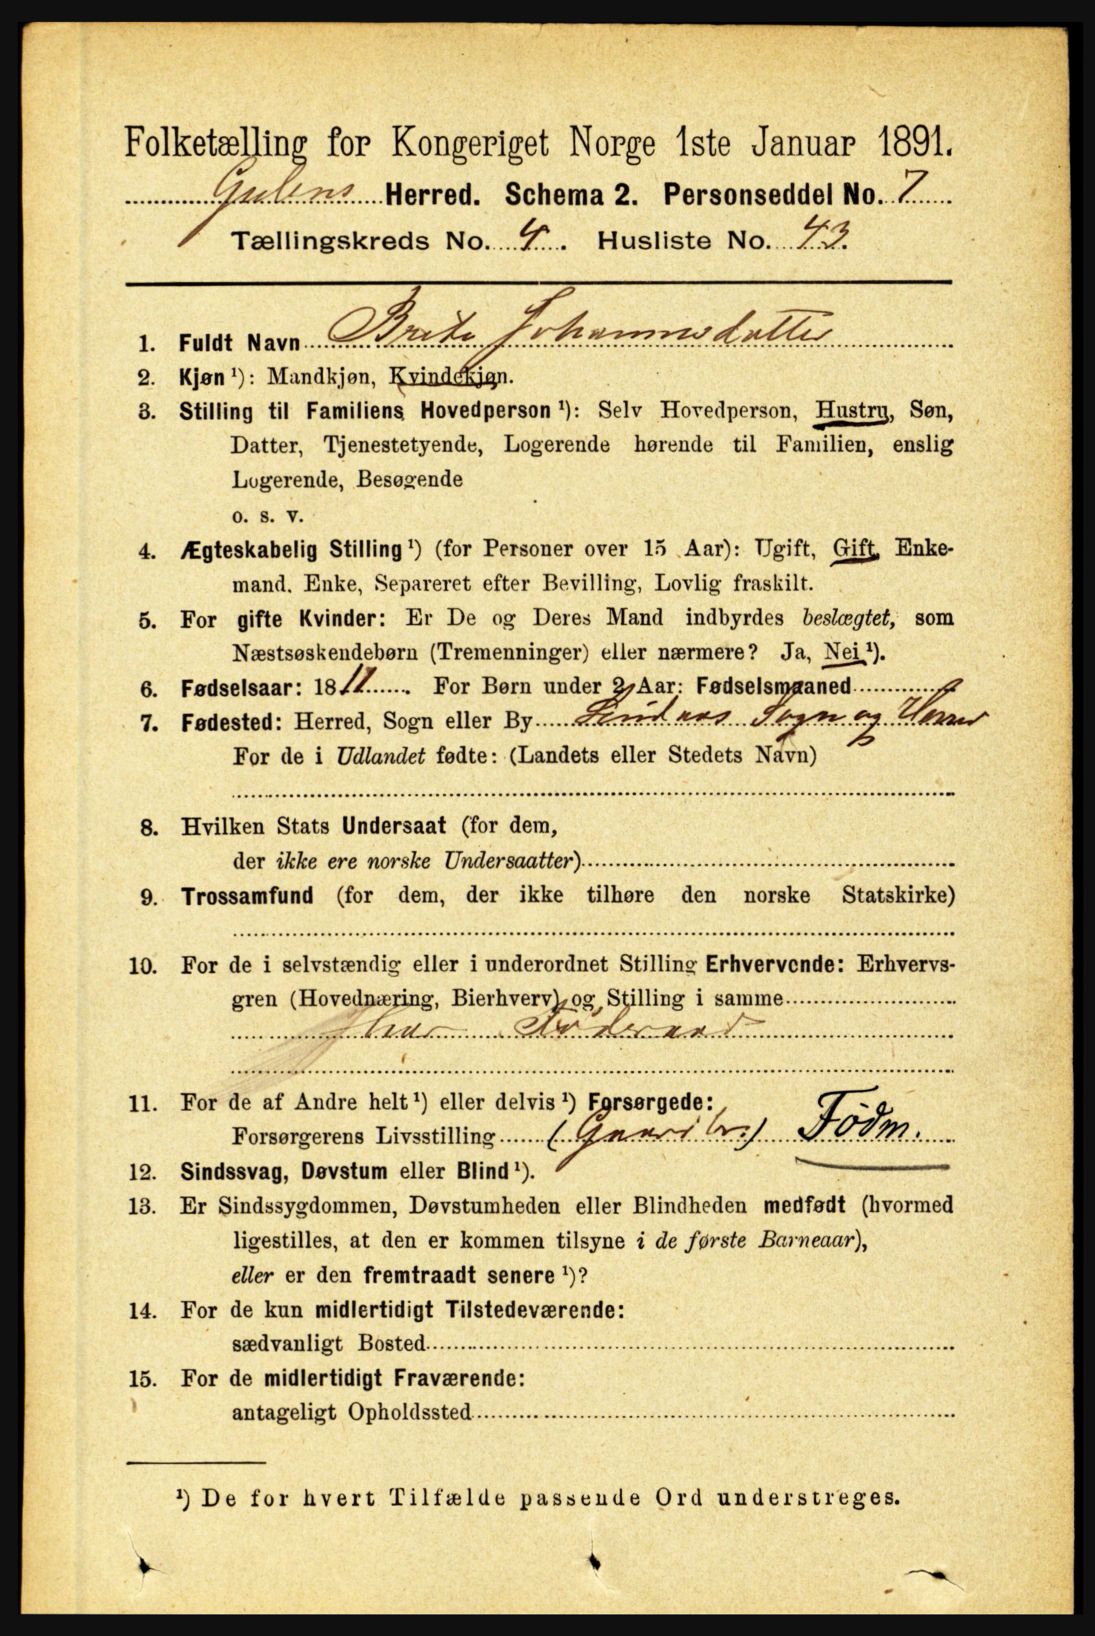 Folketælling for Kongeriget Norge 1ste Januar 1891.
Gulens Herred. Schema 2. Personseddel No. 7
Tællingskreds No. 4. Husliste No. 43.
1. Fuldt Navn Brite Johannesdatter
2. Kjøn ¹): Mandkjøn, Kvindekjøn.
3. Stilling til Familiens Hovedperson ¹): Selv Hovedperson, Hustru, Søn,
Datter, Tjenestetyende, Logerende hørende til Familien, enslig
Logerende, Besøgende
o. s. v.
4. Ægteskabelig Stilling ¹) (for Personer over 15 Aar): Ugift, Gift, Enke-
mand, Enke, Separeret efter Bevilling, Lovlig fraskilt.
5. For gifte Kvinder: Er De og Deres Mand indbyrdes beslægtet, som
Næstsøskendebørn (Tremenninger) eller nærmere? Ja, Nei ¹).
6. Fødselsaar: 1811. For Børn under 2 Aar: Fødselsmaaned
7. Fødested: Herred, Sogn eller By Lindaas Sogn og Herred
For de i Udlandet fødte: (Landets eller Stedets Navn)
8. Hvilken Stats Undersaat (for dem,
der ikke ere norske Undersaatter)
9. Trossamfund (for dem, der ikke tilhøre den norske Statskirke)
10. For de i selvstændig eller i underordnet Stilling Erhvervende: Erhvervs-
gren (Hovednæring, Bierhverv) og Stilling i samme
har Føderaad
11. For de af Andre helt ¹) eller delvis ¹) Forsørgede:
Forsørgerens Livsstilling (Gaardbr.) Fødm.
12. Sindssvag, Døvstum eller Blind ¹).
13. Er Sindssygdommen, Døvstumheden eller Blindheden medfødt (hvormed
ligestilles, at den er kommen tilsyne i de første Barneaar),
eller er den fremtraadt senere ¹)?
14. For de kun midlertidigt Tilstedeværende:
sædvanligt Bosted
15. For de midlertidigt Fraværende:
antageligt Opholdssted
¹) De for hvert Tilfælde passende Ord understreges.